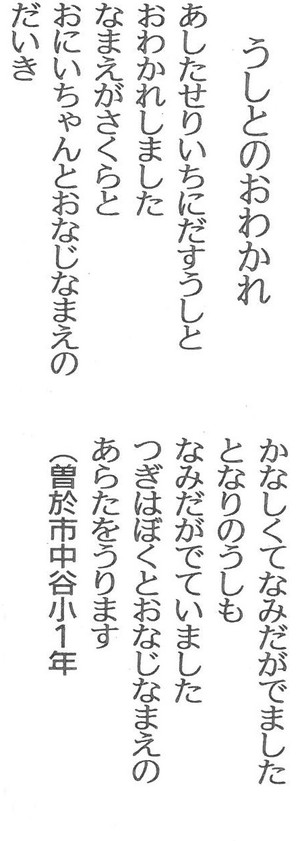 うしとのおわかれ
あしたせりいちにだすうしと
おわかれしました
なまえがさくらと
おにいちゃんとおなじなまえの
だいき
かなしくてなみだがでました
となりのうしも
なみだがでていました
つぎはぼくとおなじなまえの
あらたをうります
（曽於市中谷小1年